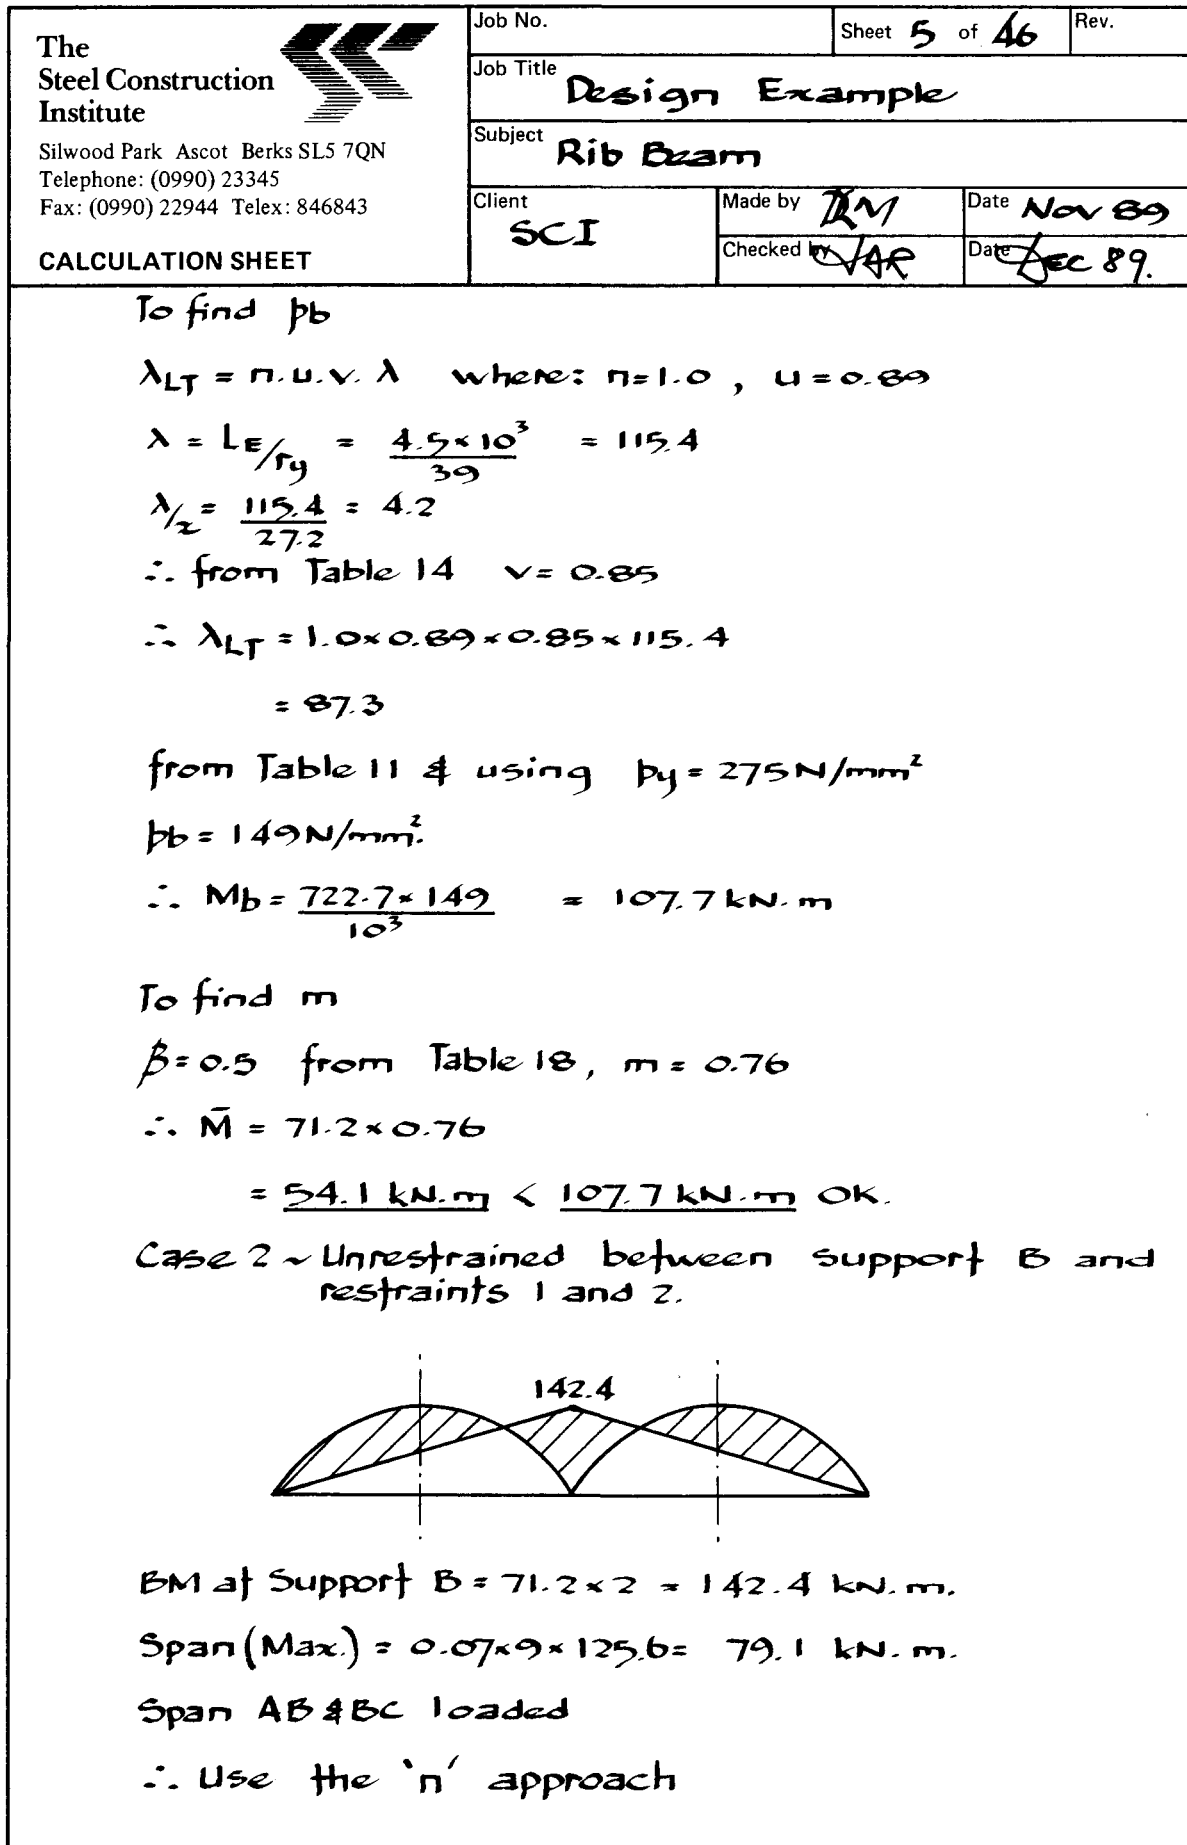 The
Steel Construction
Institute
Silwood Park Ascot Berks SL5 7QN
Telephone: (0990) 23345
Fax: (0990) 22944 Telex: 846843
CALCULATION SHEET
Job No.
Sheet 5 of 46
Rev.
Job Title Design Example
Subject Rib Beam
Client SCI
Made by
Date Nov 89
Checked by
Date Dec 89.
To find pb
λLT = n.u.v. λ where: n=1.0 , u = 0.89
λ = LE/ry = 4.5×10³/39 = 115.4
λ/x = 115.4/27.2 = 4.2
∴ from Table 14 v= 0.85
∴ λLT = 1.0×0.89×0.85×115.4
= 87.3
from Table 11 & using py = 275N/mm²
pb = 149N/mm².
∴ Mb = 722.7×149/10³ = 107.7 kN.m
To find m
β=0.5 from Table 18, m = 0.76
∴ M̄ = 71.2×0.76
= 54.1 kN.m < 107.7 kN.m OK.
Case 2 ~ Unrestrained between support B and
restraints 1 and 2.
142.4
BM at Support B = 71.2×2 = 142.4 kN.m.
Span (Max.) = 0.07×9×125.6= 79.1 kN.m.
Span AB & BC loaded
∴ Use the 'n' approach